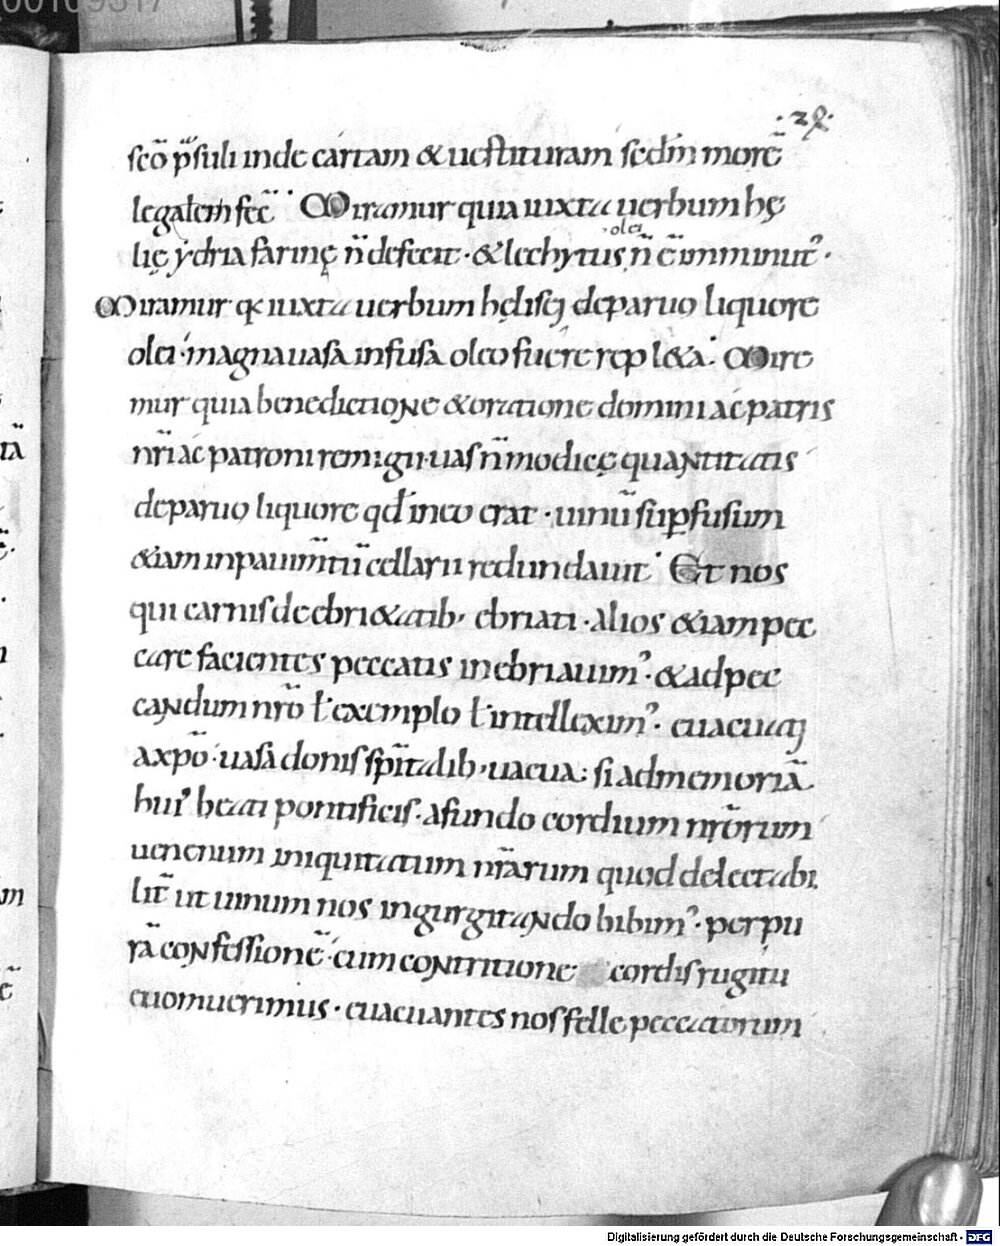 ·28·
sc̄o p̄suli inde cartam & uestituram sedm̄ morē
legalem fec̄. Miramur quia iuxta uerbum hę
lię ydria farinę n̄ defecit · & lechytus olei n̄ ē imminut᾽ ·
Miramur q iuxta uerbum hęliseį de paruo liquore
olei · magna uasa infusa oleo fuere repl&a. Mire
mur quia benedictione & oratione domini ac patris
nr̄i ac patroni remigii · uas n̄ modicę quantitatis
de paruo liquore qđ in eo erat · uinū suꝑfusum
&iam in pauim̄tū cellarii redundauit. Et nos
qui carnis de ebri&atib; ebriati · alios &iam pec
care facientes peccatis inebriauim᾽ · & ad pec
candum nr̄o ł exemplo ł intellexim᾽ · euacuatį
a xp̄o · uasa donis sp̄italib; uacua; si ad memoriā
hui᾽ beati pontificis · a fundo cordium nr̄orum
uenenum iniquitatum nr̄arum quod delectabi
lit̄ ut uinum nos ingurgitando bibim᾽ · per pu
rā confessionē · cum contritione cordis rugitu
euomuerimus · euacuantes nos felle peccatorum
Digitalisierung gefördert durch die Deutsche Forschungsgemeinschaft - DFG